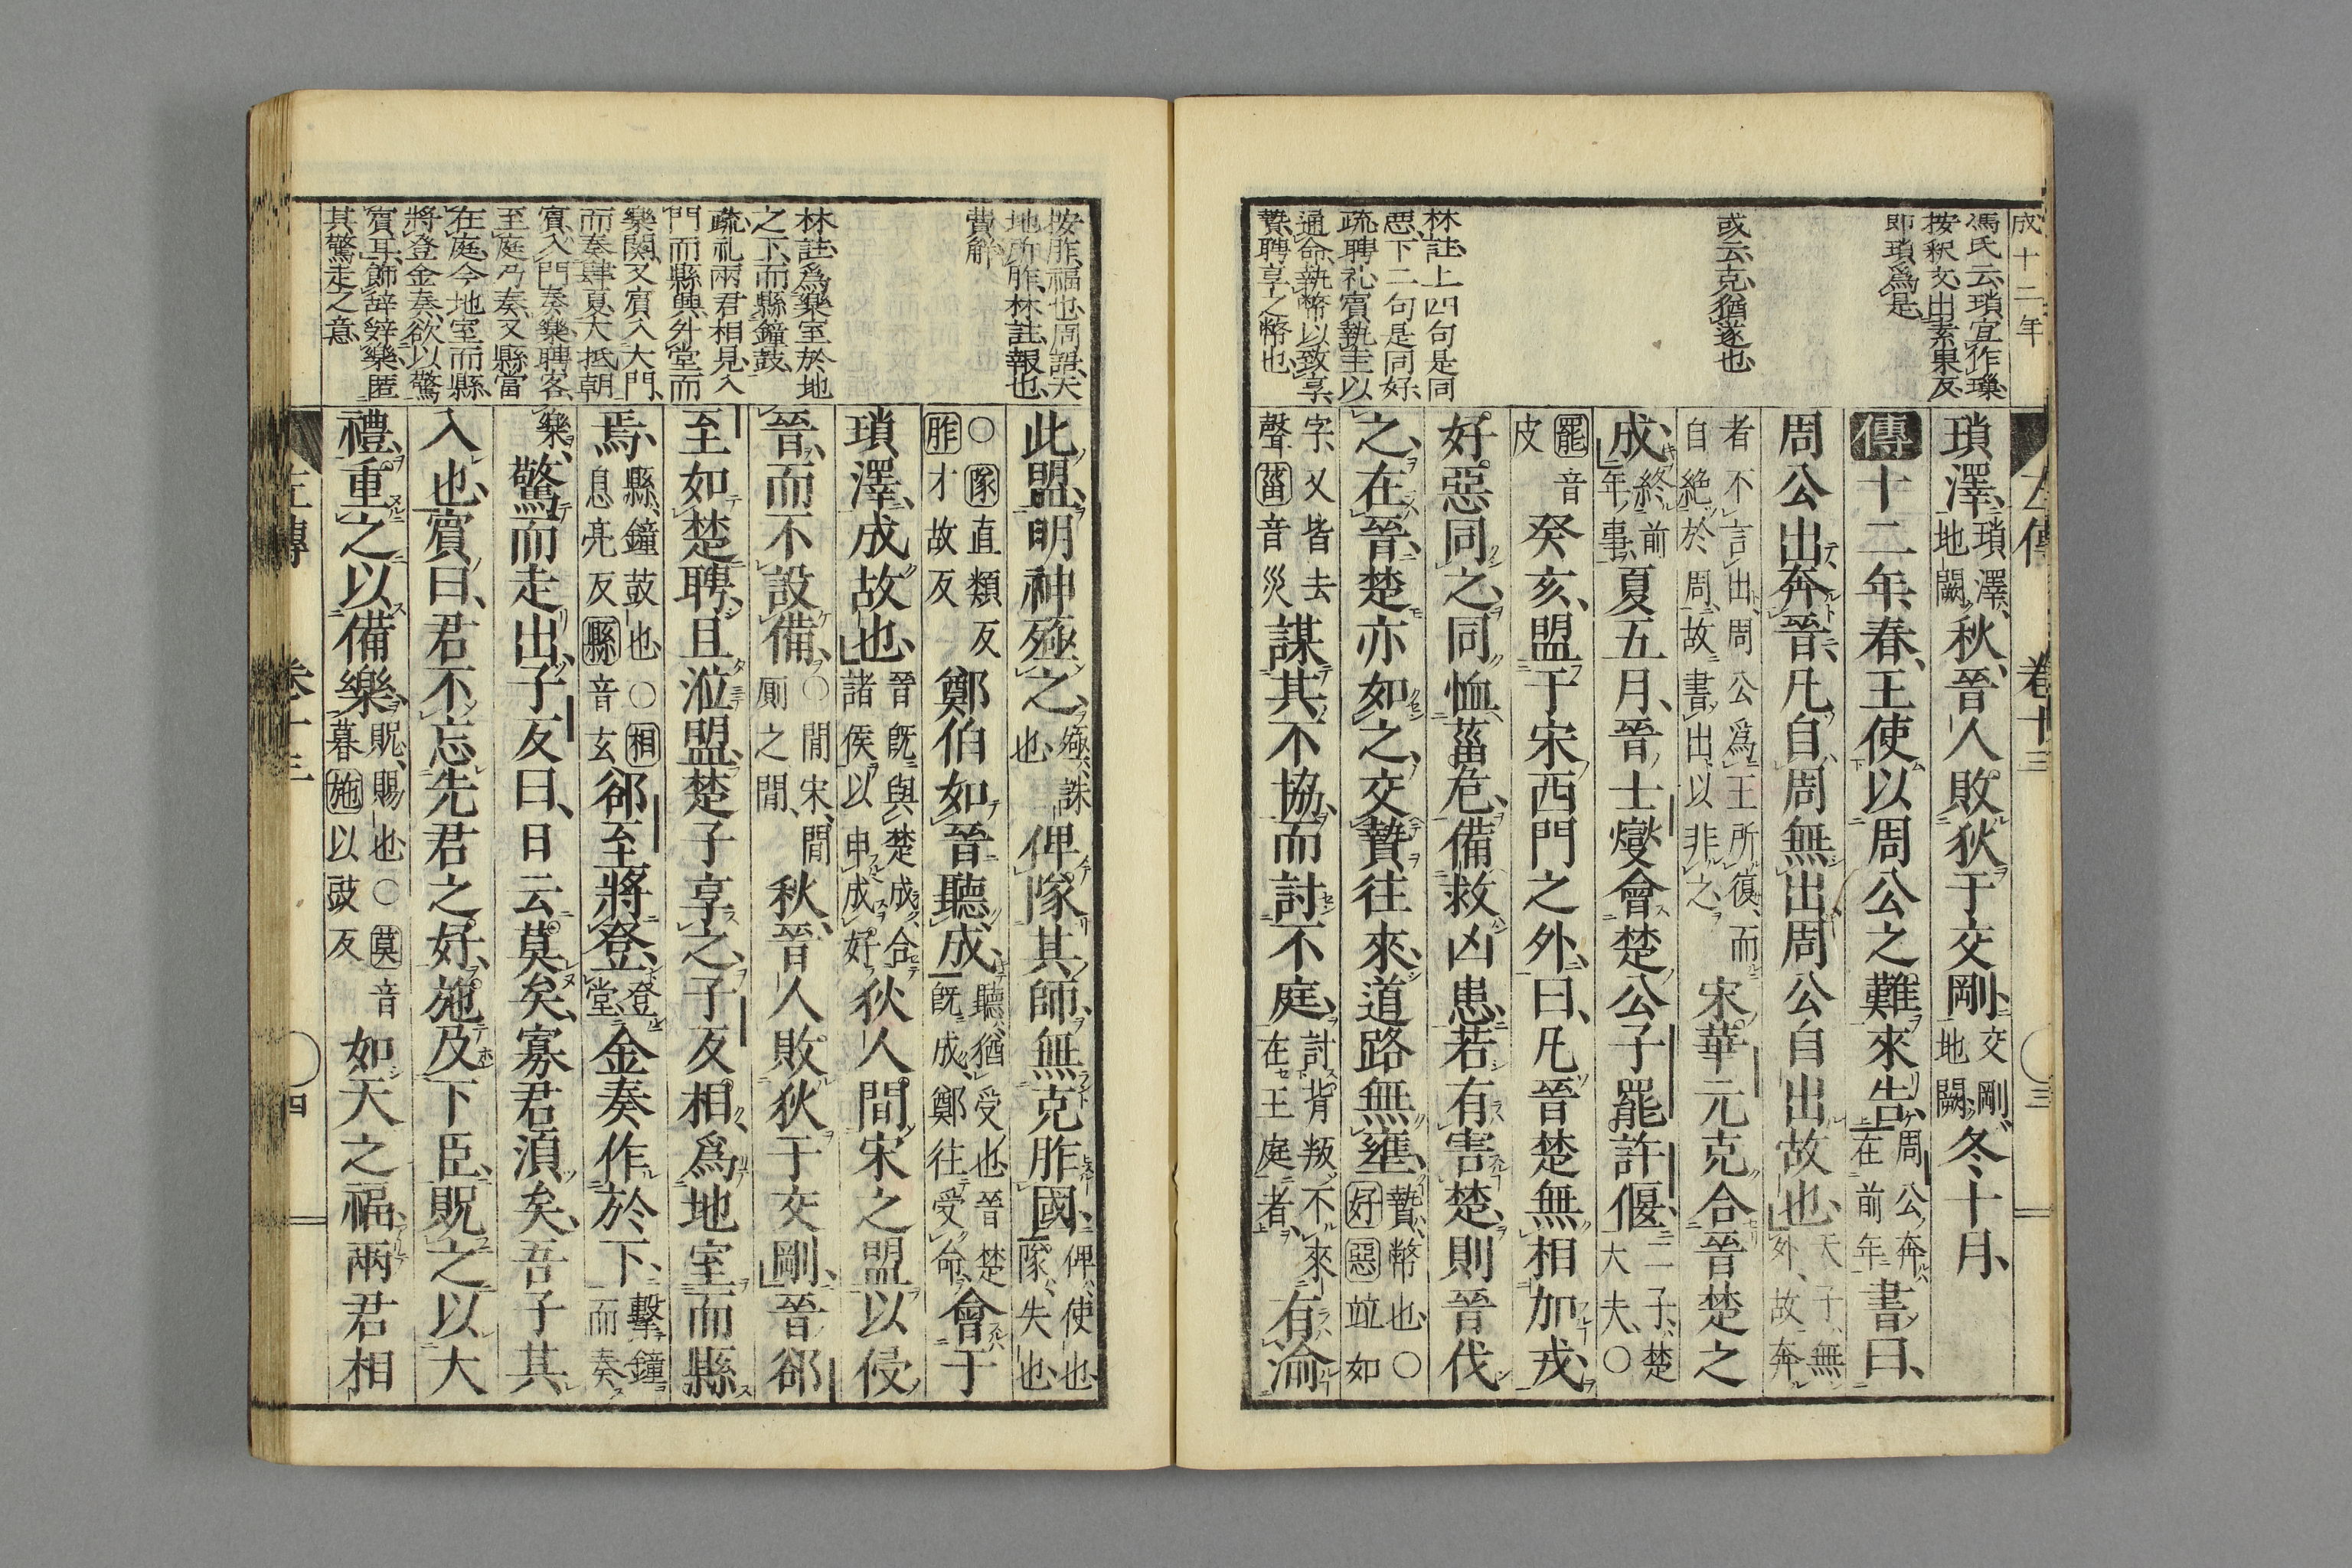 成十二年
馮氏云瑣宜作璅
按釈文出素果反
即瑣爲是
或云克猶遂也
林註上四句是同
惡下二句是同好
疏聘礼賓執圭以
通命執幣以致享
贄聘享之幣也
左傳 卷十三 三
瑣澤瑣澤地闕秋晉人敗狄于交剛交剛地闕冬十月
傳十二年春王使以周公之難來告周公奔在前年書曰
周公出奔晉凡自周無出周公自出故也天子無外故奔
者不言出周公爲王所復而自絕於周故書出以非之宋華元克合晉楚之
成終前年事夏五月晉士燮會楚公子罷許偃二子楚大夫○
罷音皮癸亥盟于宋西門之外曰凡晉楚無相加戎
好惡同之同恤菑危備救凶患若有害楚則晉伐
之在晉楚亦如之交贄往來道路無壅贄幣也○好惡並如
字又皆去聲菑音災謀其不協而討不庭討背叛不來在王庭者有渝
按胙福也周語天
地所胙林註報也
費解
林註爲樂室於地
之下而縣鐘鼓
疏礼兩君相見入
門而縣興外堂而
樂闋又賓入大門
而奏肆夏大抵朝
賓入門奏樂聘客
至庭乃奏又縣當
在庭今地室而縣
將登金奏欲以驚
賓耳飾辞辤樂匿
其驚走之意
此盟明神殛之殛誅也俾隊其師無克胙國俾使也隊失也
○隊直類反胙才故反鄭伯如晉聽成聽猶受也晉楚既成鄭往受命會于
瑣澤成故也晉既與楚成合諸侯以申成好狄人間宋之盟以侵
晉而不設備○間宋間厠之間秋晉人敗狄于交剛晉郤
至如楚聘且涖盟楚子享之子反相爲地室而縣
焉縣鐘鼓也○相息亮反縣音玄郤至將登登堂金奏作於下擊鐘而奏
樂驚而走出子反曰日云莫矣寡君須矣吾子其
入也賓曰君不忘先君之好施及下臣貺之以大
禮重之以備樂貺賜也○莫音暮施以豉反如天之福兩君相
左傳 卷十三 四